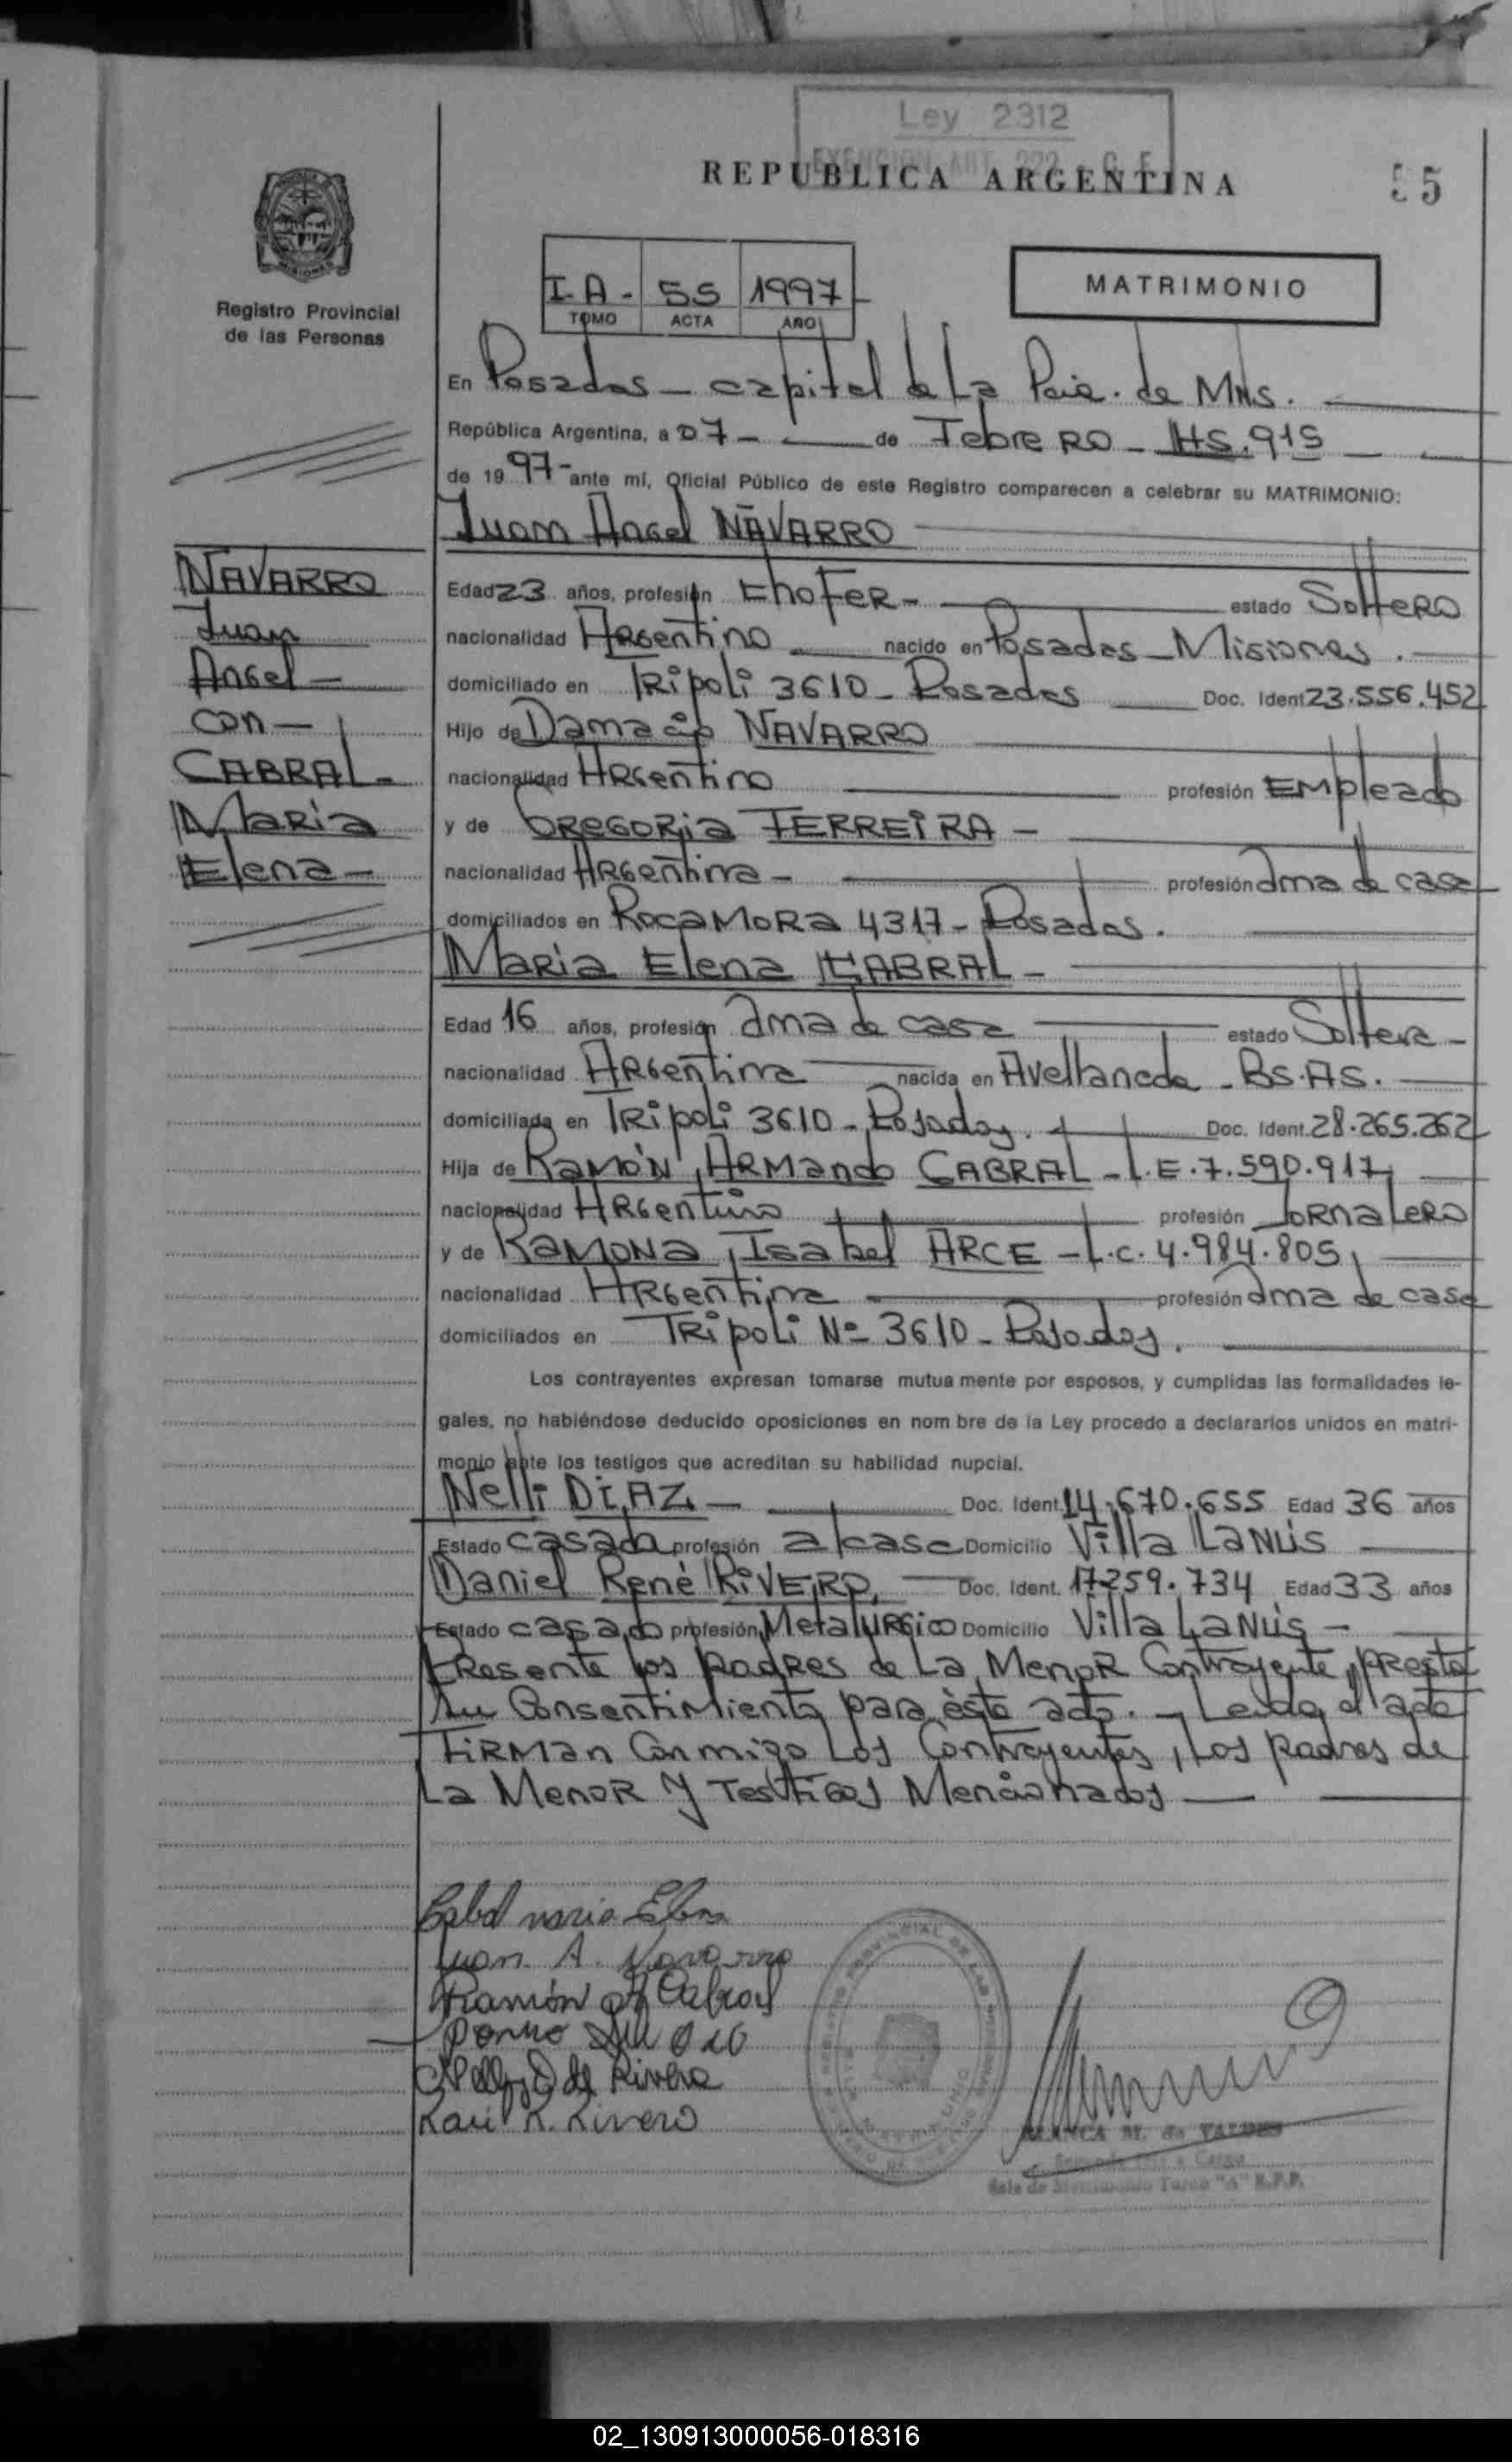 Ley 2312
REPUBLICA ARGENTINA
55
MISIONES
Registro Provincial
de las Personas
I-A- 55 1997
TOMO ACTA AÑO
MATRIMONIO
En Posadas - capital de La Pcia. de Mns.
República Argentina, a 07 - de Febrero - HS. 915
de 1997- ante mí, Oficial Público de este Registro comparecen a celebrar su MATRIMONIO:
Juan Angel NAVARRO
NAVARRO
Juan
Angel -
con -
CABRAL -
Maria
Elena -
Edad 23 años, profesión chofer - estado Soltero
nacionalidad Argentino nacido en Posadas - Misiones.
domiciliado en Tripoli 3610 - Posadas Doc. Ident 23.556.452
Hijo de Damacio NAVARRO
nacionalidad Argentino profesión Empleado
y de Gregoria FERREIRA -
nacionalidad Argentina - profesión ama de casa
domiciliados en Rocamora 4317 - Posadas.
Maria Elena CABRAL -
Edad 16 años, profesión ama de casa estado Soltera -
nacionalidad Argentina nacida en Avellaneda - Bs. As.
domiciliada en Tripoli 3610 - Posadas. Doc. Ident. 28.265.262
Hija de Ramón Armando CABRAL - L.E. 7.590.917,
nacionalidad Argentino profesión Jornalero
y de Ramona Isabel ARCE - L.C. 4.984.805,
nacionalidad Argentina profesión ama de casa
domiciliados en Tripoli Nº 3610 - Posadas.
Los contrayentes expresan tomarse mutua mente por esposos, y cumplidas las formalidades le-
gales, no habiéndose deducido oposiciones en nom bre de la Ley procedo a declararlos unidos en matri-
monio ante los testigos que acreditan su habilidad nupcial.
Nelli DIAZ - Doc. Ident. 14.670.655 Edad 36 años
Estado casada profesión a/casa Domicilio Villa Lanús
Daniel René RIVERO, Doc. Ident. 17259.734 Edad 33 años
Estado casado profesión Metalurgico Domicilio Villa Lanús -
Presente los padres de La Menor Contrayente, presta
su Consentimiento para éste acto. - Leida el acta
Firman Conmigo Los Contrayentes, Los padres de
La Menor y Testigos Mencionados
Cabral maria Elena
Juan A. Navarro
Ramón A Cabral
de Rivero
R. Rivero
BLANCA M. de VALDES
Sala de Matrimonio Turno "A" R.P.P.
02_130913000056-018316